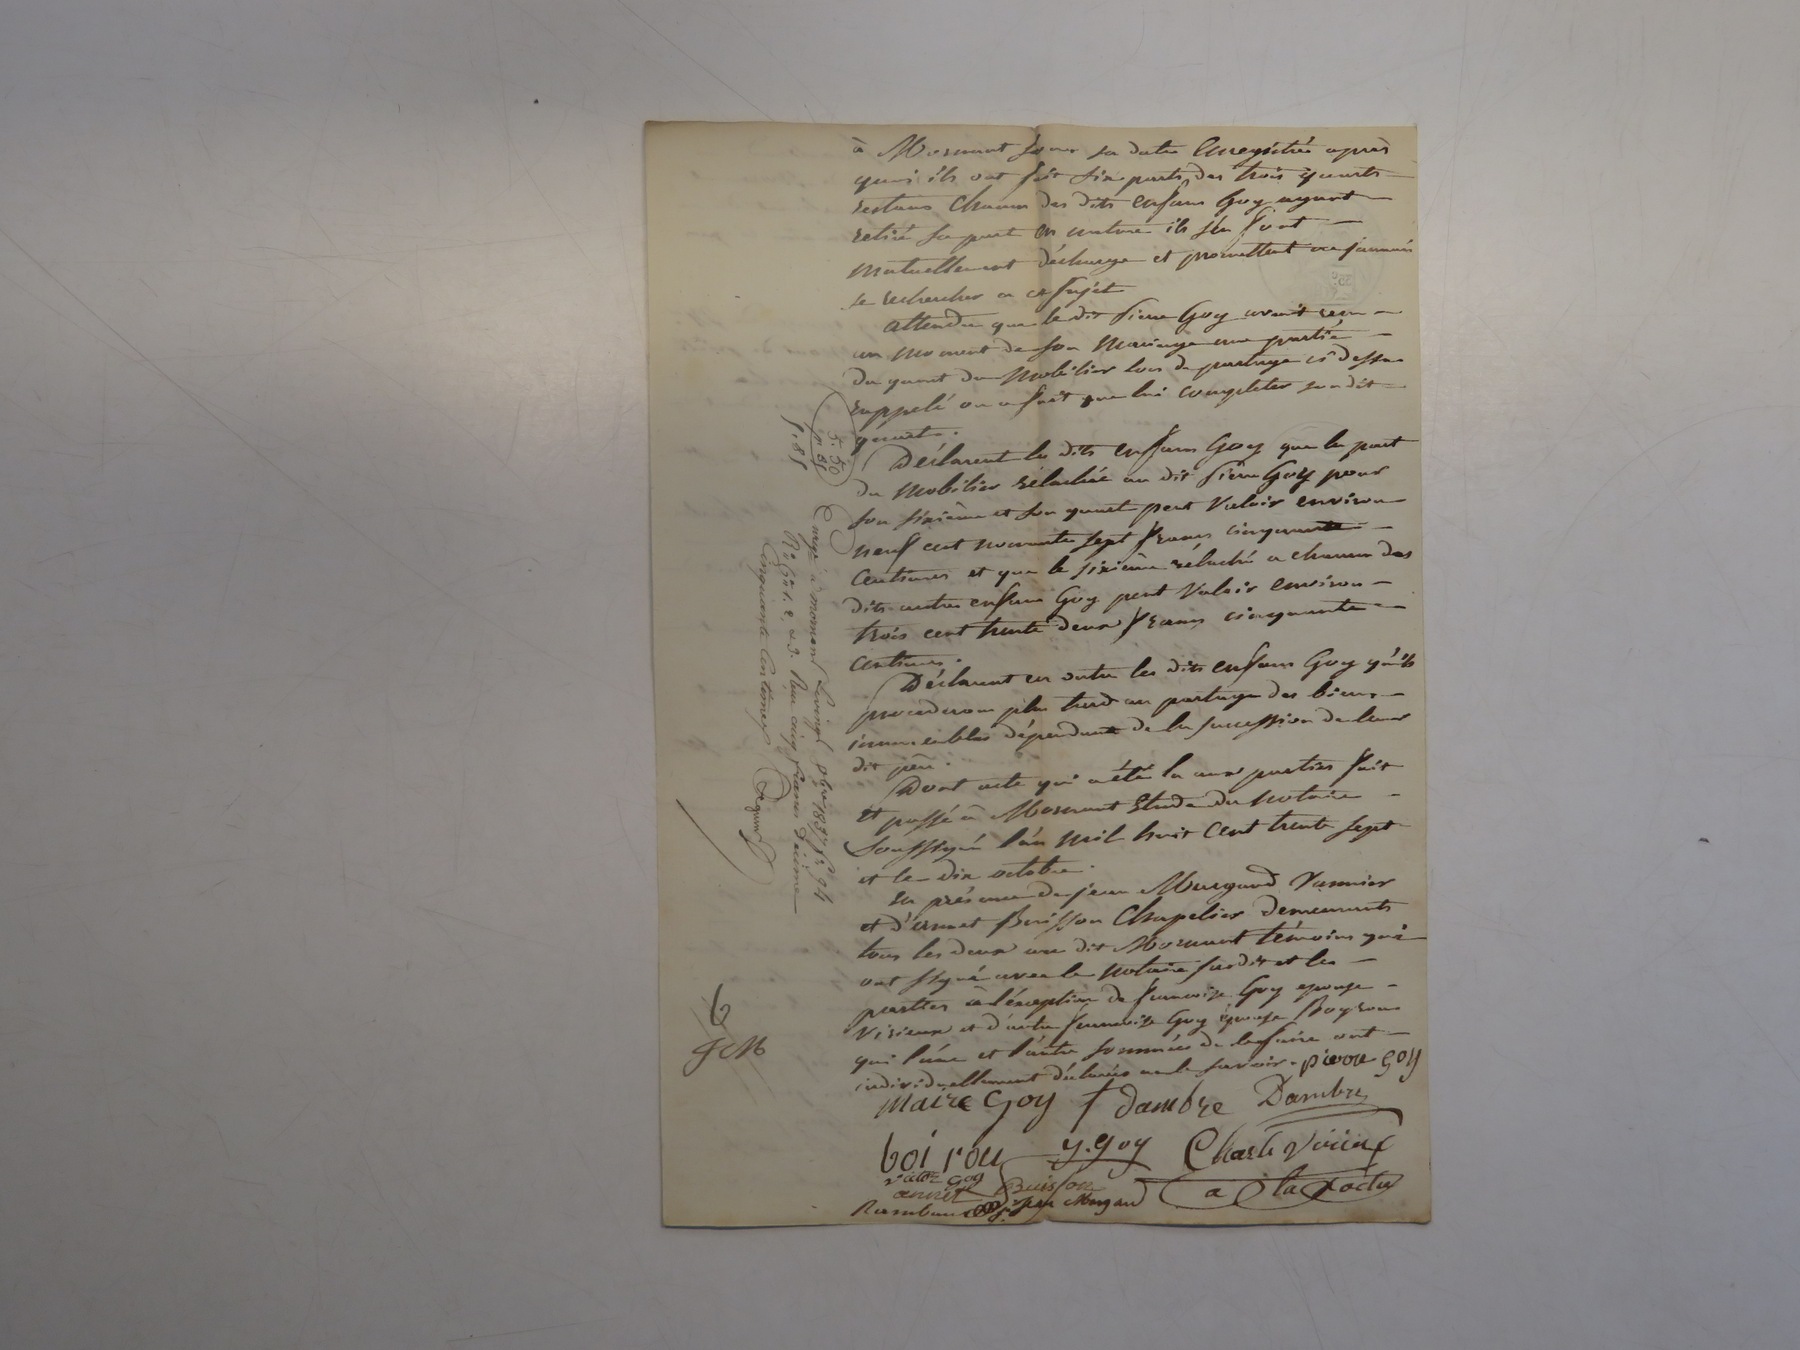 à Mornant sous sa date Enregistrée après
quoi ils ont fait six parts des trois quarts
restans Chacun des dits enfans Goy ayant
retiré sa part en nature ils s'en font
mutuellement décharge et promettent ne jamais
se rechercher a ce sujet
attendu que le dit Pierre Goy avait reçu
au moment de son Mariage une partie
du quart du Mobilier lors du partage ci dessus
rappelé on a fait que lui completer son dit
quart.
Déclarent les dits enfans Goy que la part
du Mobilier rélachée au dit Pierre Goy pour
son sixième et son quart peut Valoir environ
neuf cent nonante sept francs cinquante
Centimes et que le sixième rélaché a chacun des
dits autres enfans Goy peut Valoir environ
trois cent trente deux francs cinquante
centimes.
Déclarent en outre les dits enfans Goy qu'ils
procederont plus tard au partage des biens
immeubles dépendants de la succession de leur
dit père.
Dont acte qui a été lu aux parties fait
et passé à Mornant Etude du Notaire
Soussigné l'an mil huit Cent trente sept
et le dix octobre
En présence de jean Murgand Vannier
et d'ennet Buisson Chapelier demeurants
tous les deux au dit Mornant témoins qui
ont signé avec le notaire susdit et les
parties à l'éxception de françoise Goy epouse
Virieux et d'autre françoise Goy épouse Boyron
qui l'une et l'autre sommées de le faire ont
individuellement déclaré ne le savoir. pierre goy
maire Goy f dambre Dambre
boirou y. goy Charle Virieux
Buisson a
jean Murgand
5. 50
Engé à mornant 1837 fo 94
cinq francs Décime
Cinquante Centimes
6